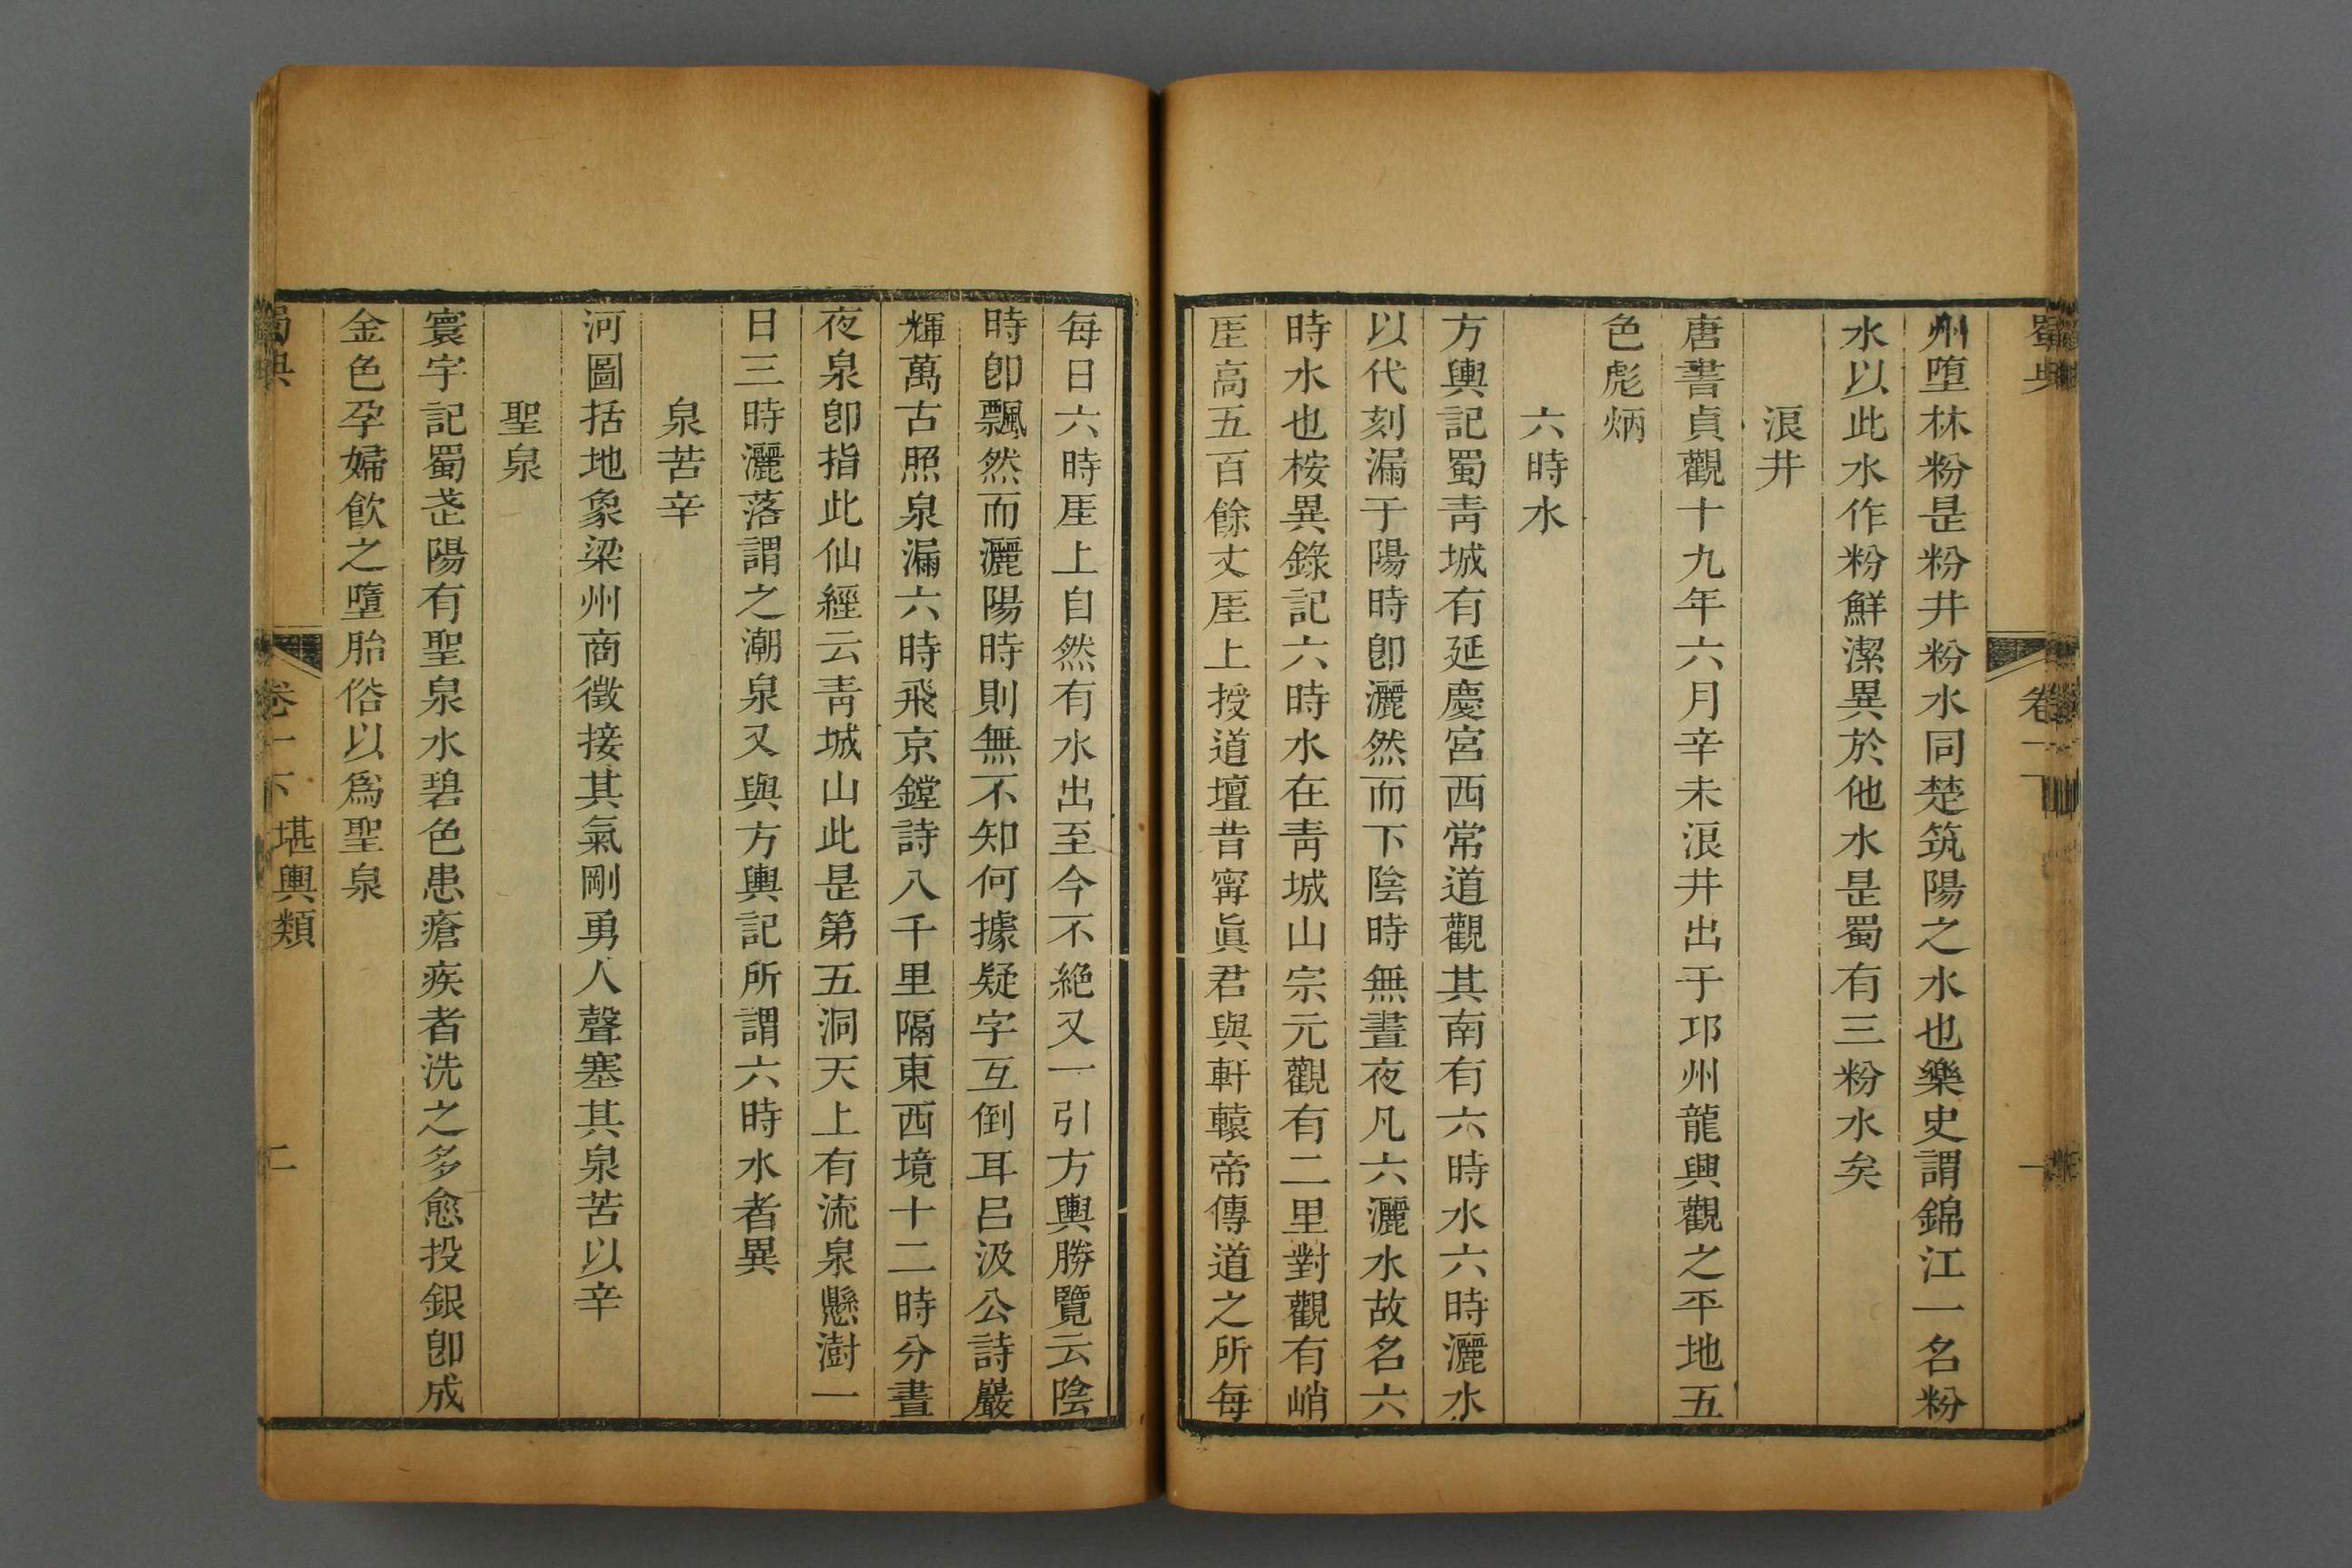 蜀典
卷一下
州墮林粉是粉井粉水同楚筑陽之水也樂史謂錦江一名粉
水以此水作粉鮮潔異於他水是蜀有三粉水矣
浪井
唐書貞觀十九年六月辛未浪井出于邛州龍興觀之平地五
色彪炳
六時水
方輿記蜀青城有延慶宮西常道觀其南有六時水六時灑水
以代刻漏于陽時卽灑然而下陰時無晝夜凡六灑水故名六
時水也桉異錄記六時水在青城山宗元觀有二里對觀有峭
厓高五百餘丈厓上授道壇昔甯眞君與軒轅帝傳道之所每
每日六時厓上自然有水出至今不絕又一引方輿勝覽云陰
時卽飄然而灑陽時則無不知何據疑字互倒耳呂汲公詩嚴
輝萬古照泉漏六時飛京鏜詩八千里隔東西境十二時分晝
夜泉卽指此仙經云青城山此是第五洞天上有流泉懸澍一
日三時灑落謂之潮泉又與方輿記所謂六時水者異
泉苦辛
河圖括地象梁州商徵接其氣剛勇人聲塞其泉苦以辛
聖泉
寰宇記蜀茋陽有聖泉水碧色患瘡疾者洗之多愈投銀卽成
金色孕婦飲之墮胎俗以爲聖泉
蜀典
卷一下
堪輿類
二